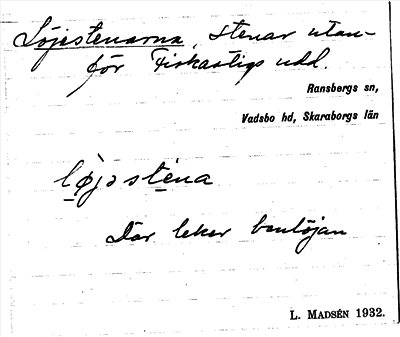 Löjestenarna, stenar utan-
för Fiskastigs udd.
Ransbergs sn,
Vadsbo hd, Skaraborgs län
løjəstena
Där leker benlöjan
L. MADSÉN 1932.